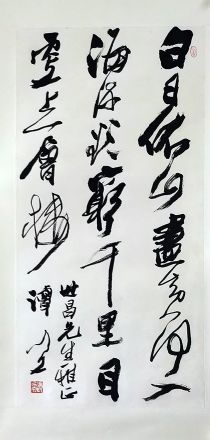 白日依山盡黃河入
海流欲窮千里目
更上一層樓
世昌先生雅正